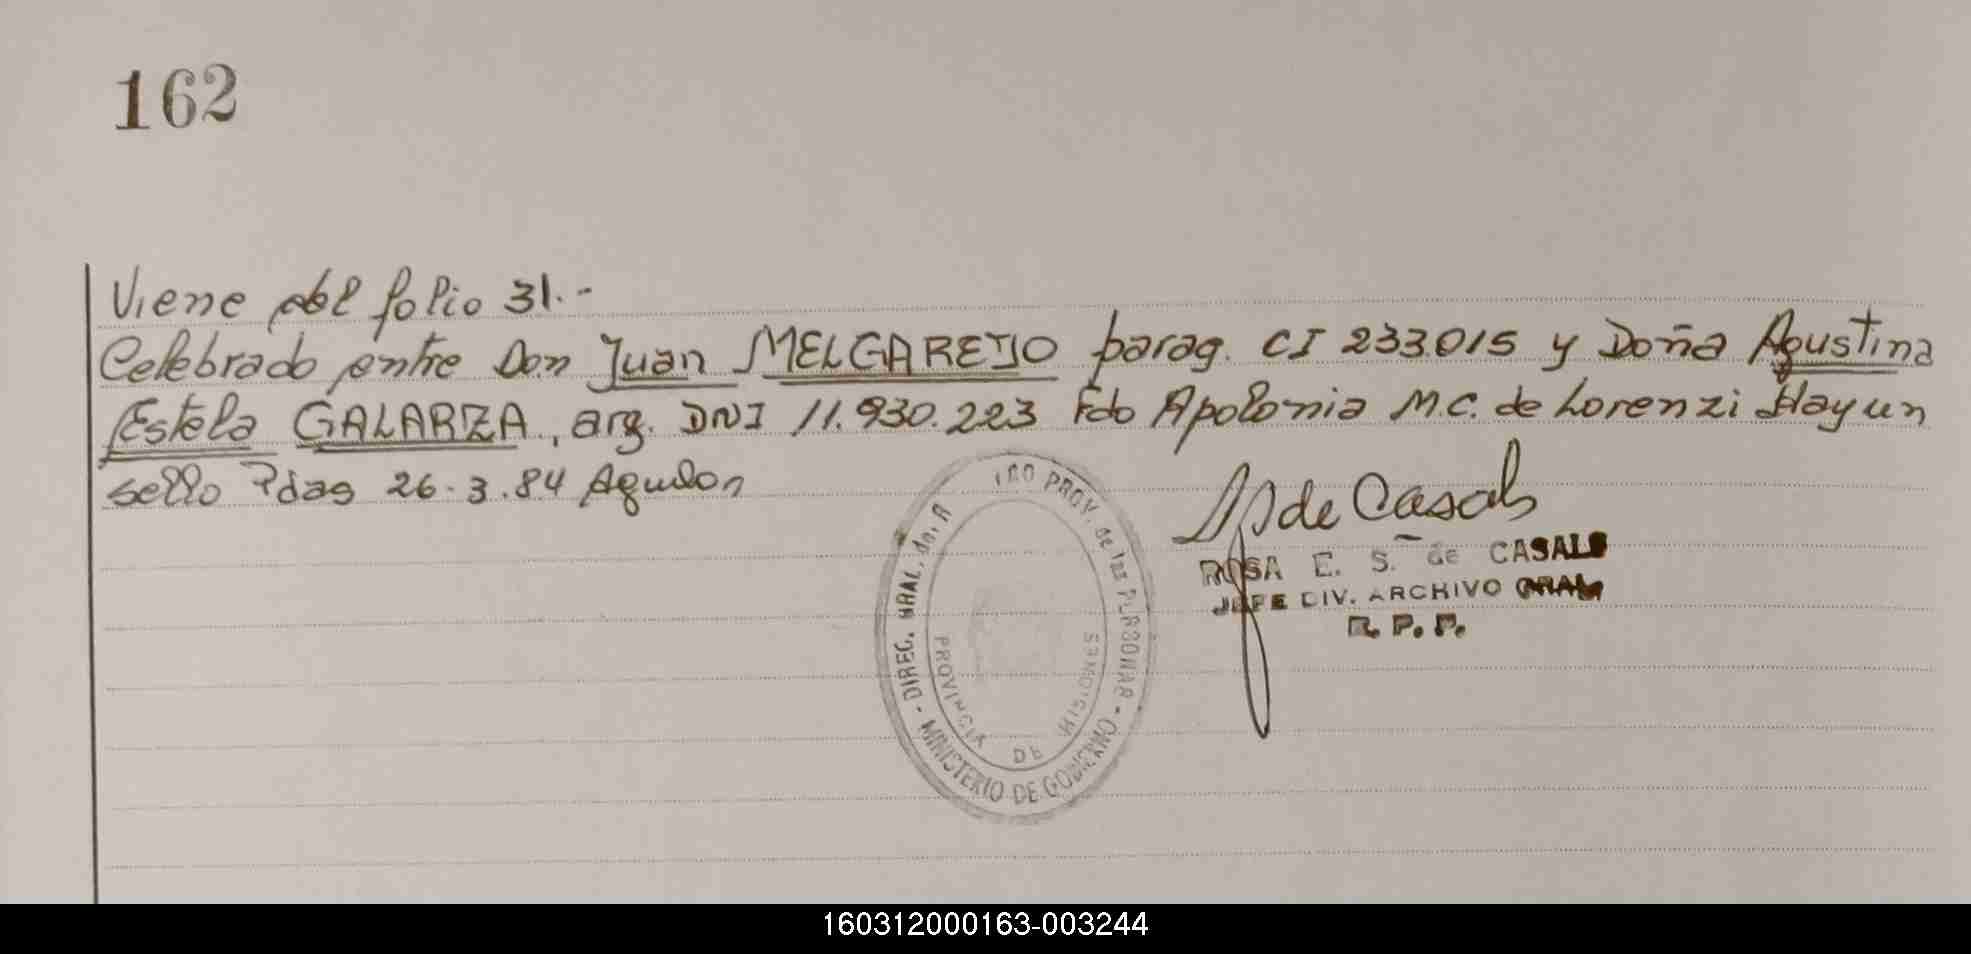 162
Viene del folio 31.-
Celebrado entre Don Juan MELGAREJO parag. CI 233.015 y Doña Agustina
Estela GALARZA, arg. DNI 11.930.223 Fdo Apolonia M.C. de Lorenzi Hay un
sello Pdas 26.3.84
de Casals
ROSA E. S. de CASALS
JEFE DIV. ARCHIVO GRAL
R. P. P.
DIREC. GRAL. del R PROV. de las PERSONAS - MINISTERIO DE GOBIERNO -
PROVINCIA DE MISIONES
160312000163-003244